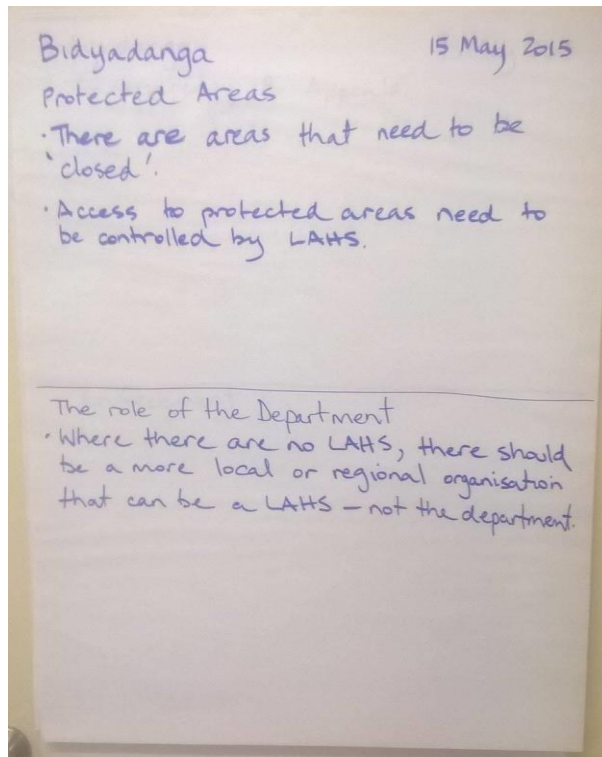 Bidyadanga 15 May 2015
Protected Areas
· There are areas that need to be
'closed'.
· Access to protected areas need to
be controlled by LAHS.
The role of the Department
· Where there are no LAHS, there should
be a more local or regional organisation
that can be a LAHS – not the department.